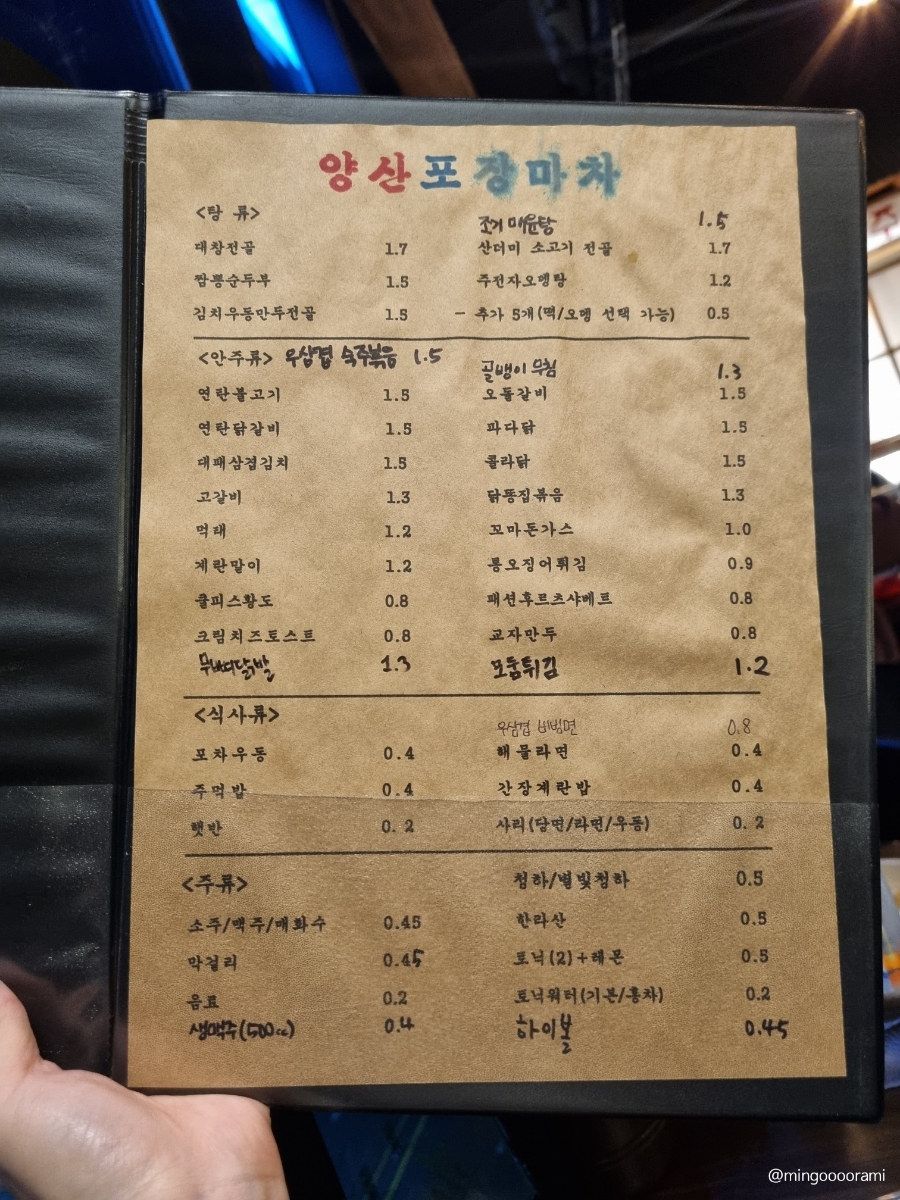 양산포장마차
<탕 류>
조개 매운탕 1.5
대창전골 1.7
산더미 소고기 전골 1.7
짬뽕순두부 1.5
주전자오뎅탕 1.2
김치우동만두전골 1.5
- 추가 5개(떡/오뎅 선택 가능) 0.5
<안주류> 우삼겹 숙주볶음 1.5
골뱅이 무침 1.3
연탄불고기 1.5
오돌갈비 1.5
연탄닭갈비 1.5
파다닭 1.5
대패삼겹김치 1.5
콜라닭 1.5
고갈비 1.3
닭똥집볶음 1.3
먹태 1.2
꼬마돈가스 1.0
계란말이 1.2
통오징어튀김 0.9
쿨피스황도 0.8
패션후르츠샤베트 0.8
크림치즈토스트 0.8
교자만두 0.8
무뼈닭발 1.3
모둠튀김 1.2
<식사류>
우삼겹 비빔면 0.8
포차우동 0.4
해물라면 0.4
주먹밥 0.4
간장계란밥 0.4
햇반 0.2
사리(당면/라면/우동) 0.2
<주류>
청하/별빛청하 0.5
소주/맥주/매화수 0.45
한라산 0.5
막걸리 0.45
토닉(2)+레몬 0.5
음료 0.2
토닉워터(기본/홍차) 0.2
생맥주(500cc) 0.4
하이볼 0.45
@mingoooorami